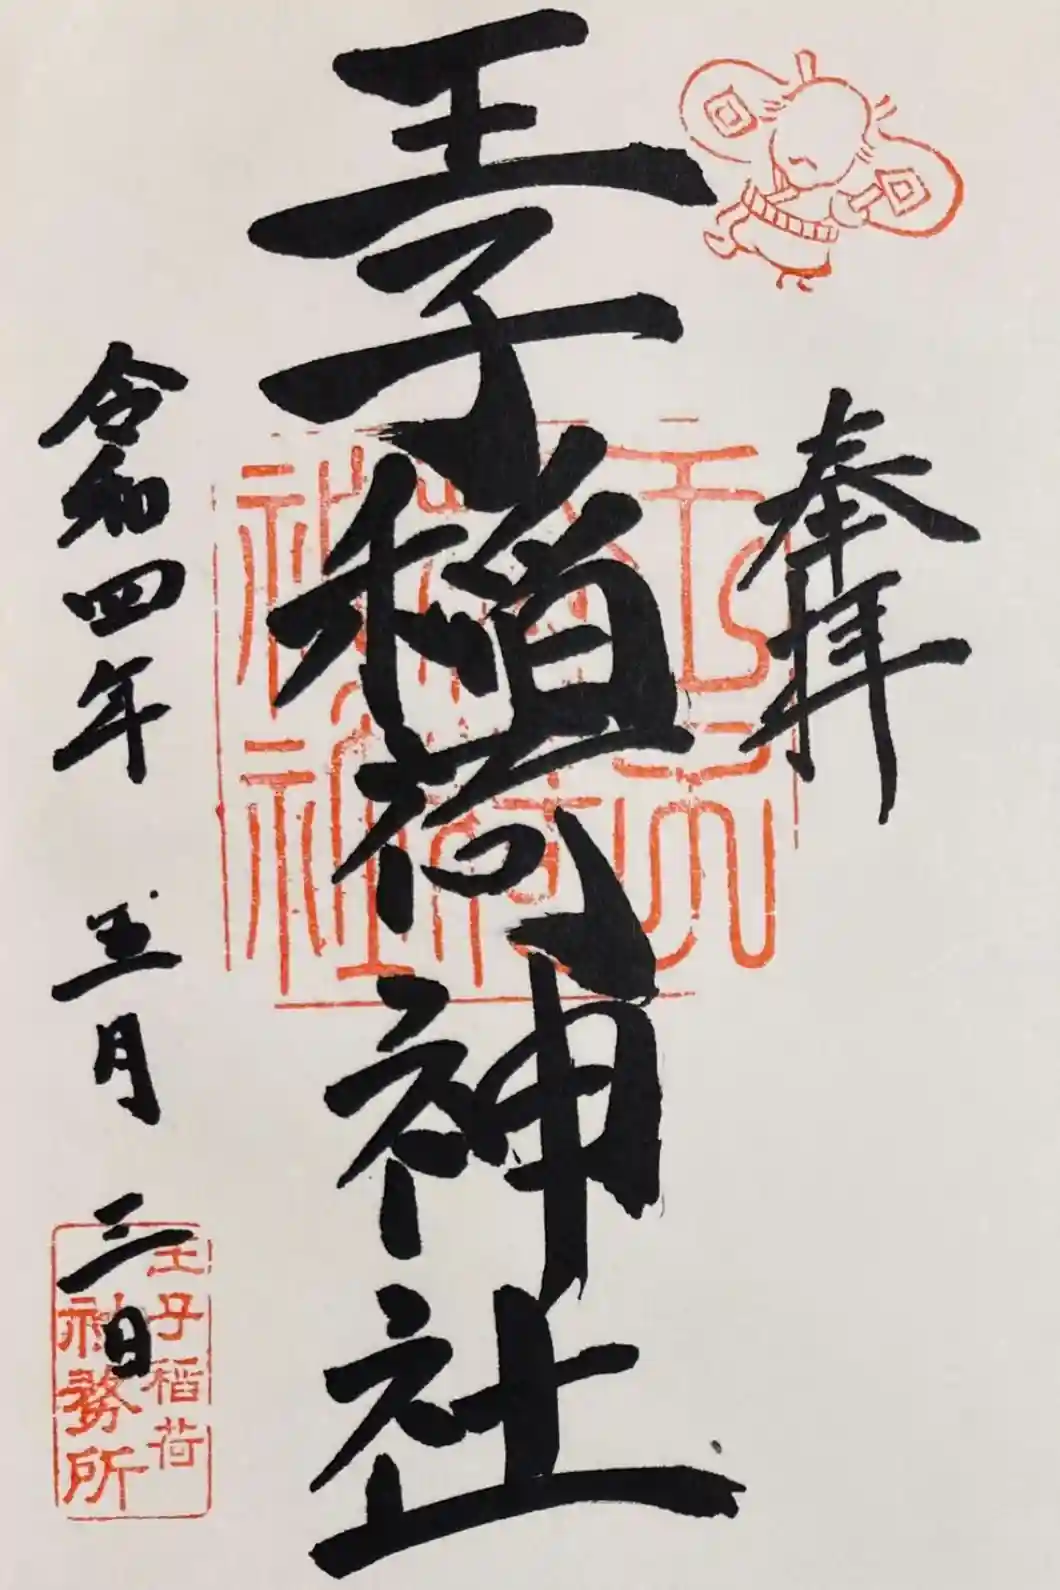 奉拝
王子稲荷神社
王子
稲荷
神社
令和四年 五月 三日
王子稲荷
社務所